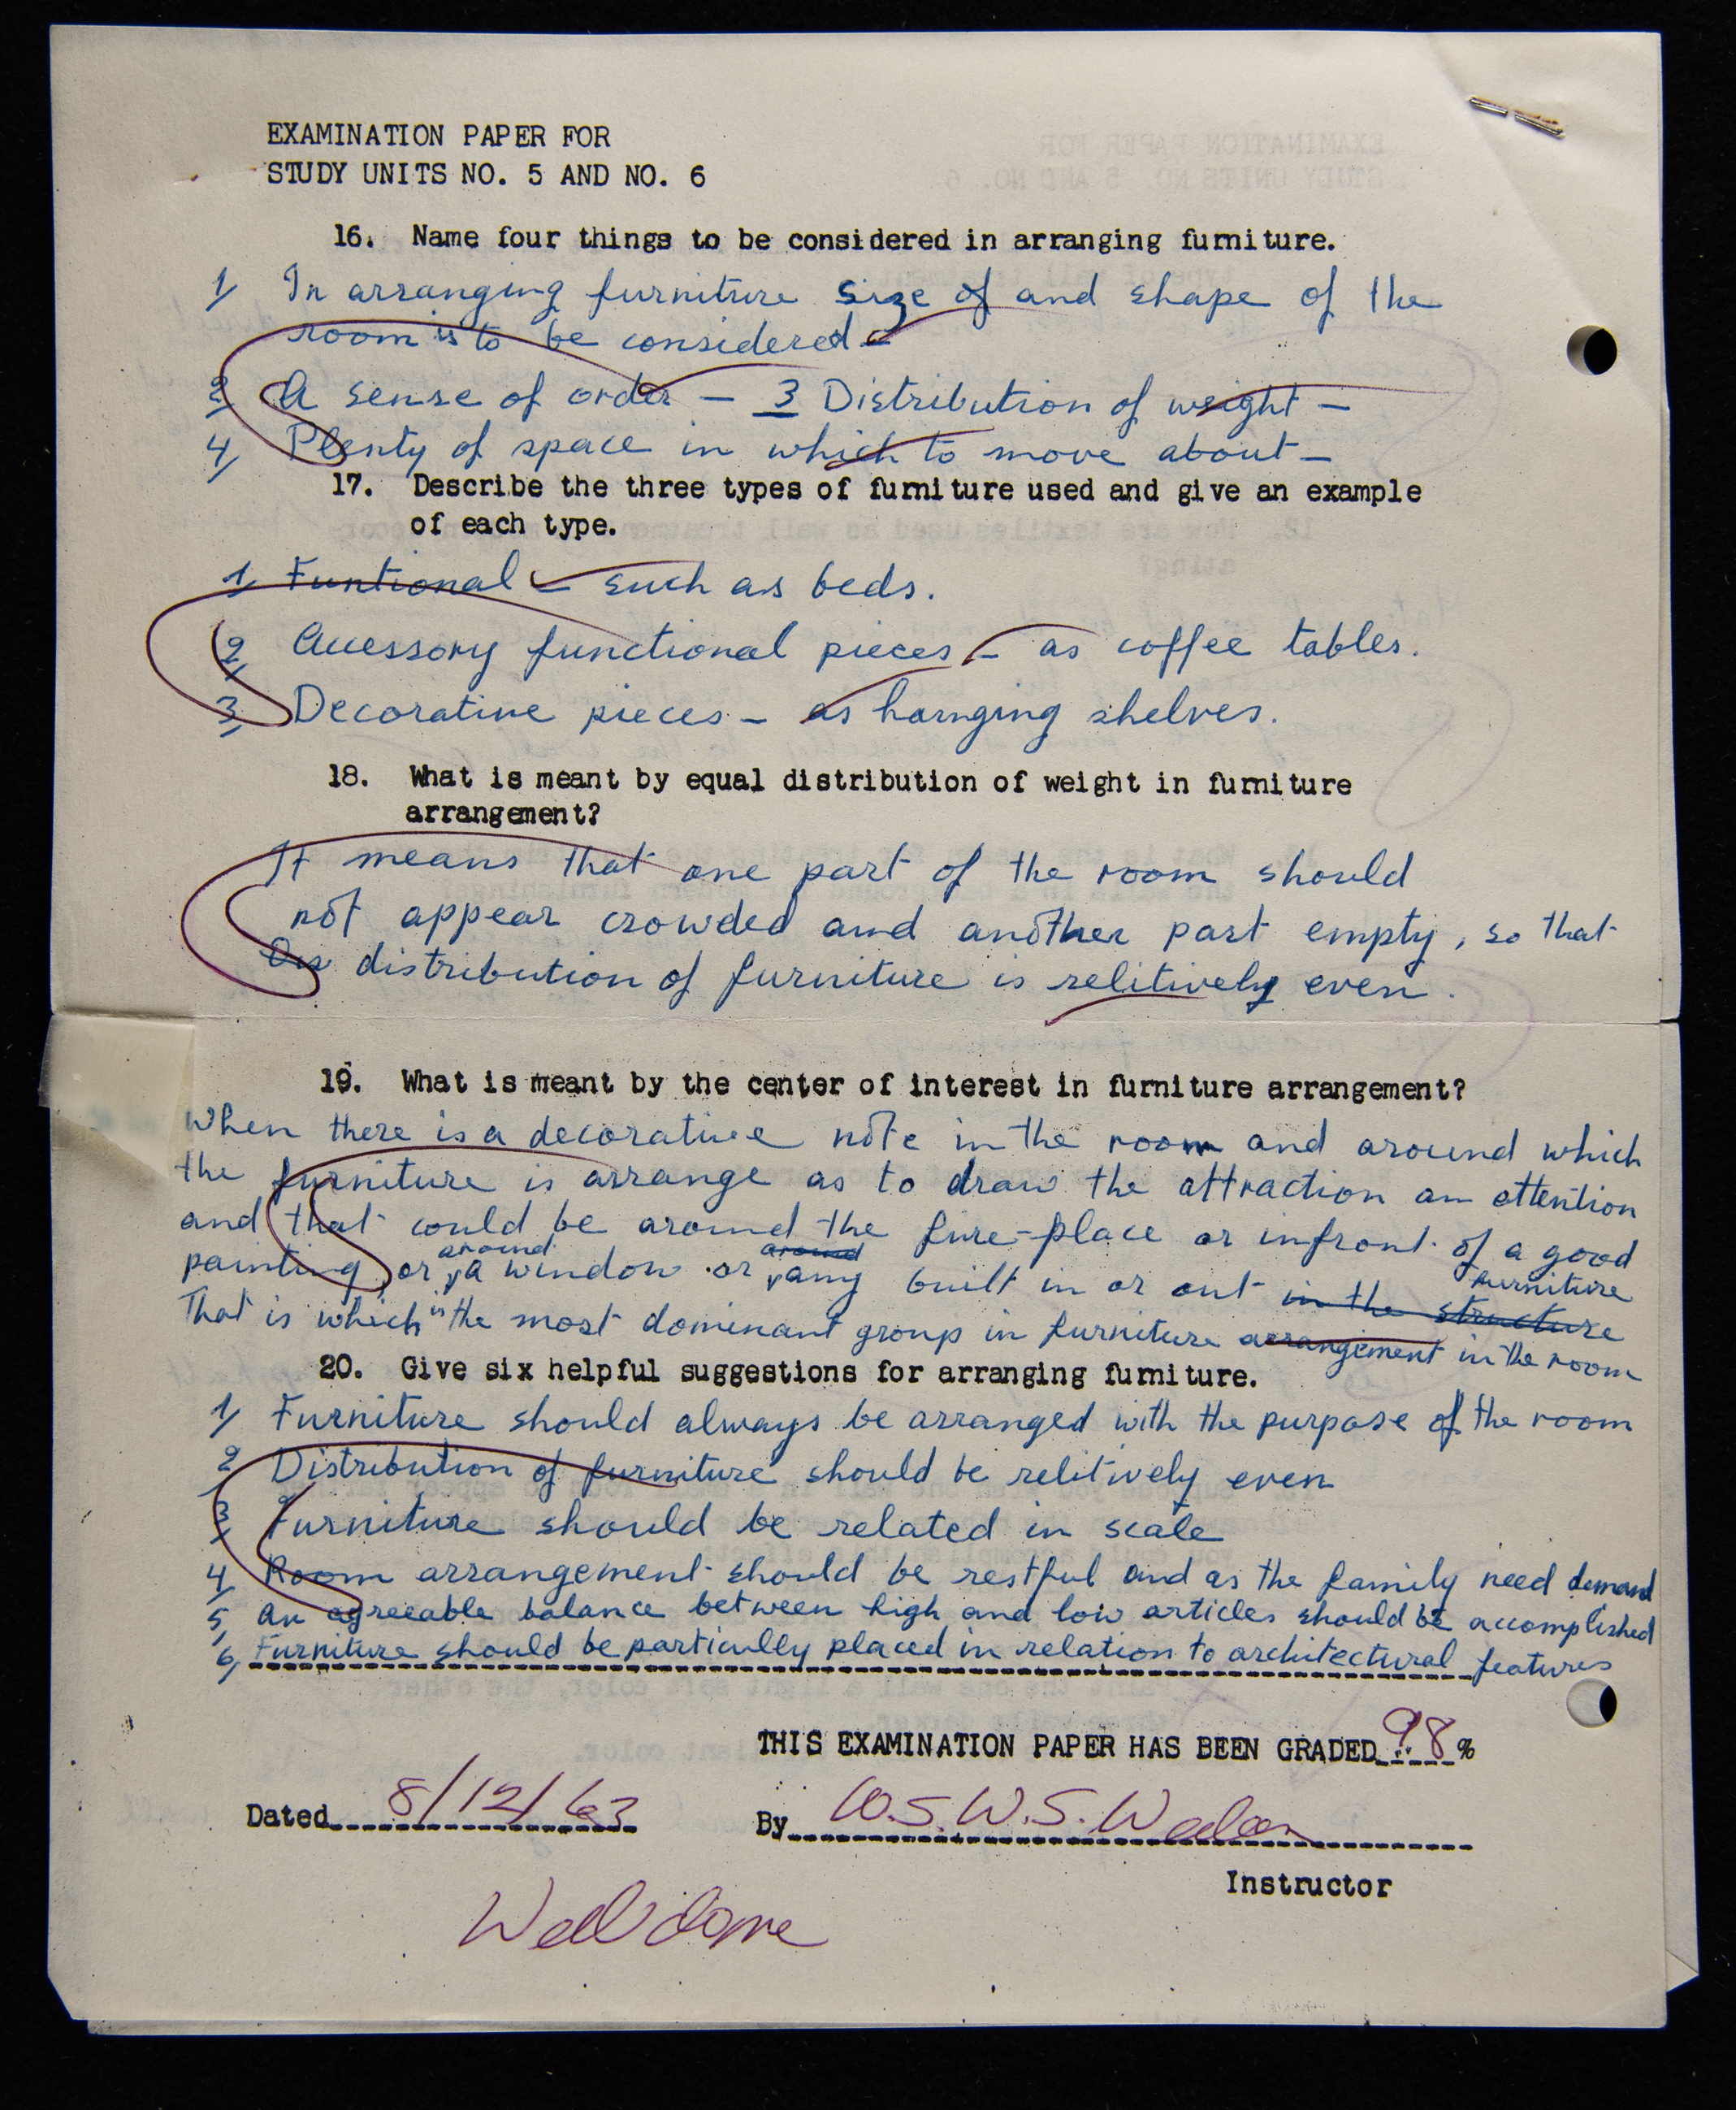 EXAMINATION PAPER FOR
STUDY UNITS NO. 5 AND NO. 6
16. Name four things to be considered in arranging furniture.
1/ In arranging furniture size of and shape of the
room is to be considered -
2/ A sense of order - 3 Distribution of weight -
4/ Plenty of space in which to move about -
17. Describe the three types of furniture used and give an example
of each type.
1/ Funtional - such as beds.
2/ Accessory functional pieces - as coffee tables.
3/ Decorative pieces - as hanging shelves.
18. What is meant by equal distribution of weight in furniture
arrangement?
It means that one part of the room should
not appear crowded and another part empty, so that
distribution of furniture is relitively even.
19. What is meant by the center of interest in furniture arrangement?
When there is a decorative note in the room and around which
the furniture is arrange as to draw the attraction an attention
and that could be around the fire-place or infront of a good
painting, or around a window or around any built in or out in the structure furniture
That is which is the most dominant group in furniture arrangement in the room
20. Give six helpful suggestions for arranging furniture.
1/ Furniture should always be arranged with the purpose of the room
2 Distribution of furniture should be relitively even
3/ Furniture should be related in scale
4/ Room arrangement should be restful and as the family need demand
5/ An agreeable balance between high and low articles should be accomplished
6/ Furniture should be particully placed in relation to architectural features
THIS EXAMINATION PAPER HAS BEEN GRADED 98 %
Dated 8/12/63 By W.S.
Instructor
Well done